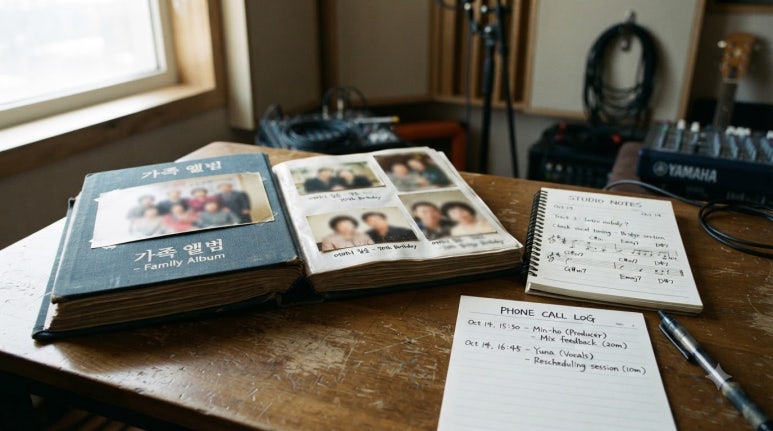 가족 앨범
가족 앨범
- Family Album
70th Birthday
70th Birthday
STUDIO NOTES
Oct 14
Oct 14
Check vocal tuning - Bridge section
C#m7
Emaj7
D#7
G#m7
Emaj7
D#7
PHONE CALL LOG
Oct 14, 15:30 - Min-ho (Producer)
- Mix feedback (20m)
Oct 14, 16:45 - Yuna (Vocals)
- Rescheduling session (10m)
YAMAHA